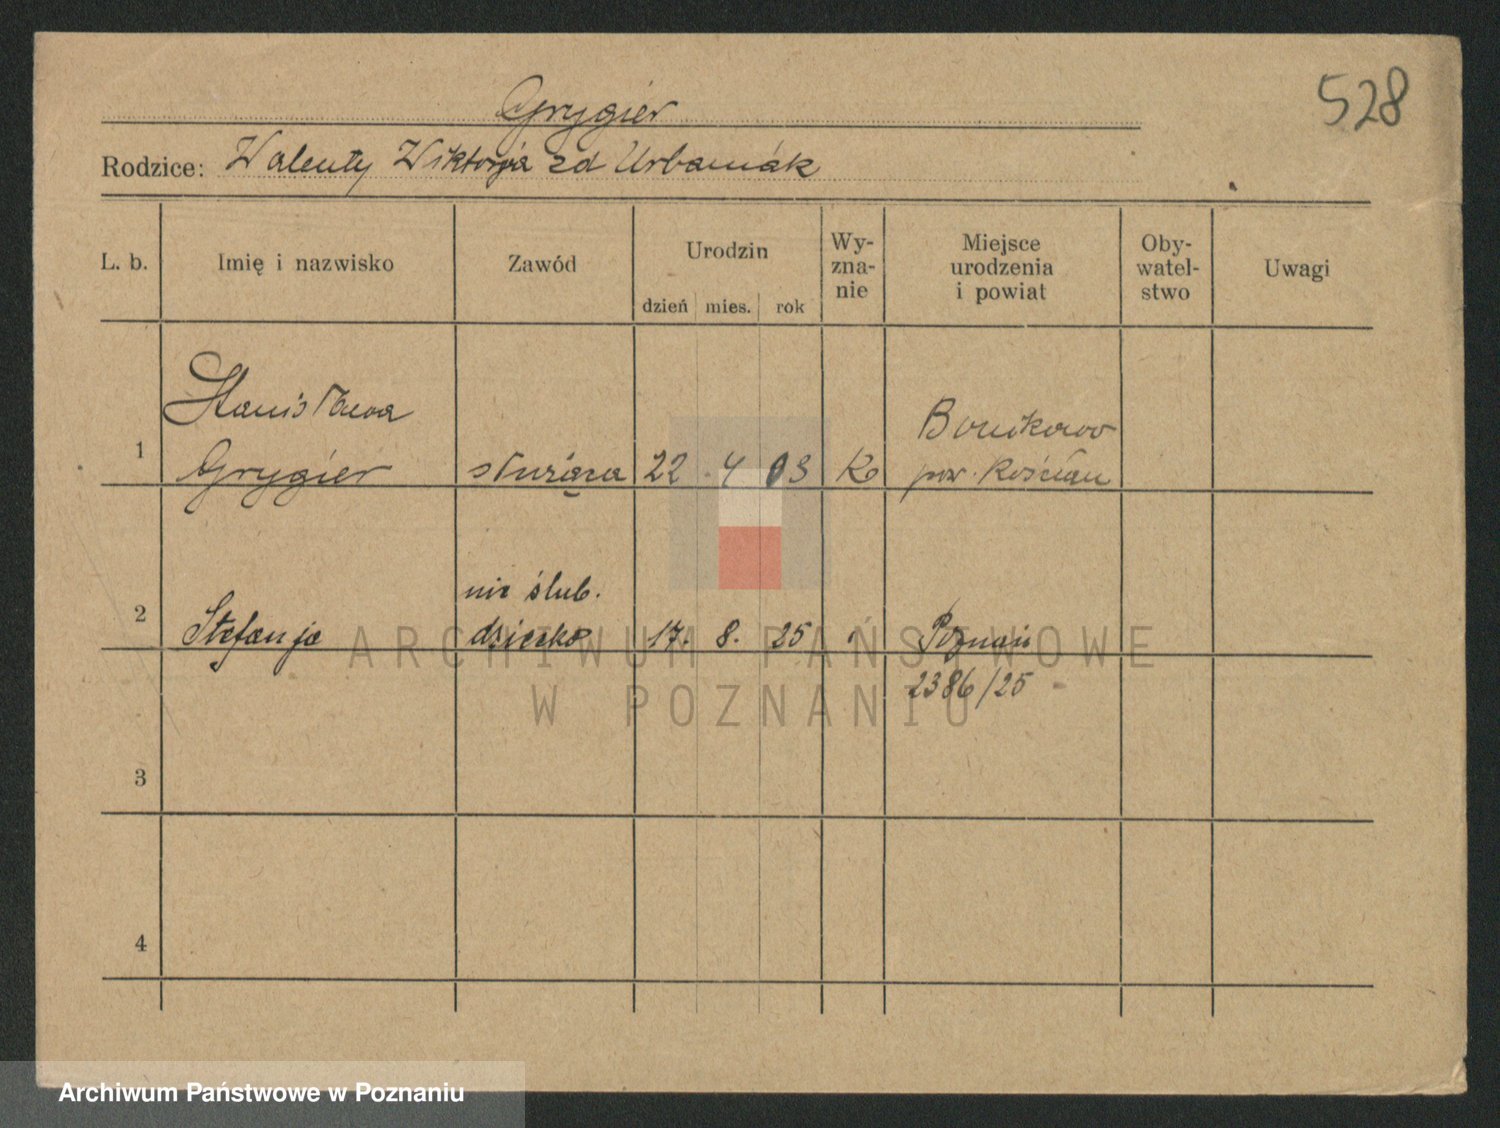 528
Grygier
Rodzice: Walenty Wiktorja zd Urbaniak
L. b.
Imię i nazwisko
Zawód
Urodzin
dzień mies. rok
Wy-
zna-
nie
Miejsce
urodzenia
i powiat
Oby-
watel-
stwo
Uwagi
1
Stanisława
Grygier
służąca
22 4 03
K
Bonikowo
pow. Kościan
2
Stefanja
nie ślub.
dziecko
17. 8. 25
"
Poznań
2386/25
3
4
ARCHIWUM PAŃSTWOWE
W POZNANIU
Archiwum Państwowe w Poznaniu